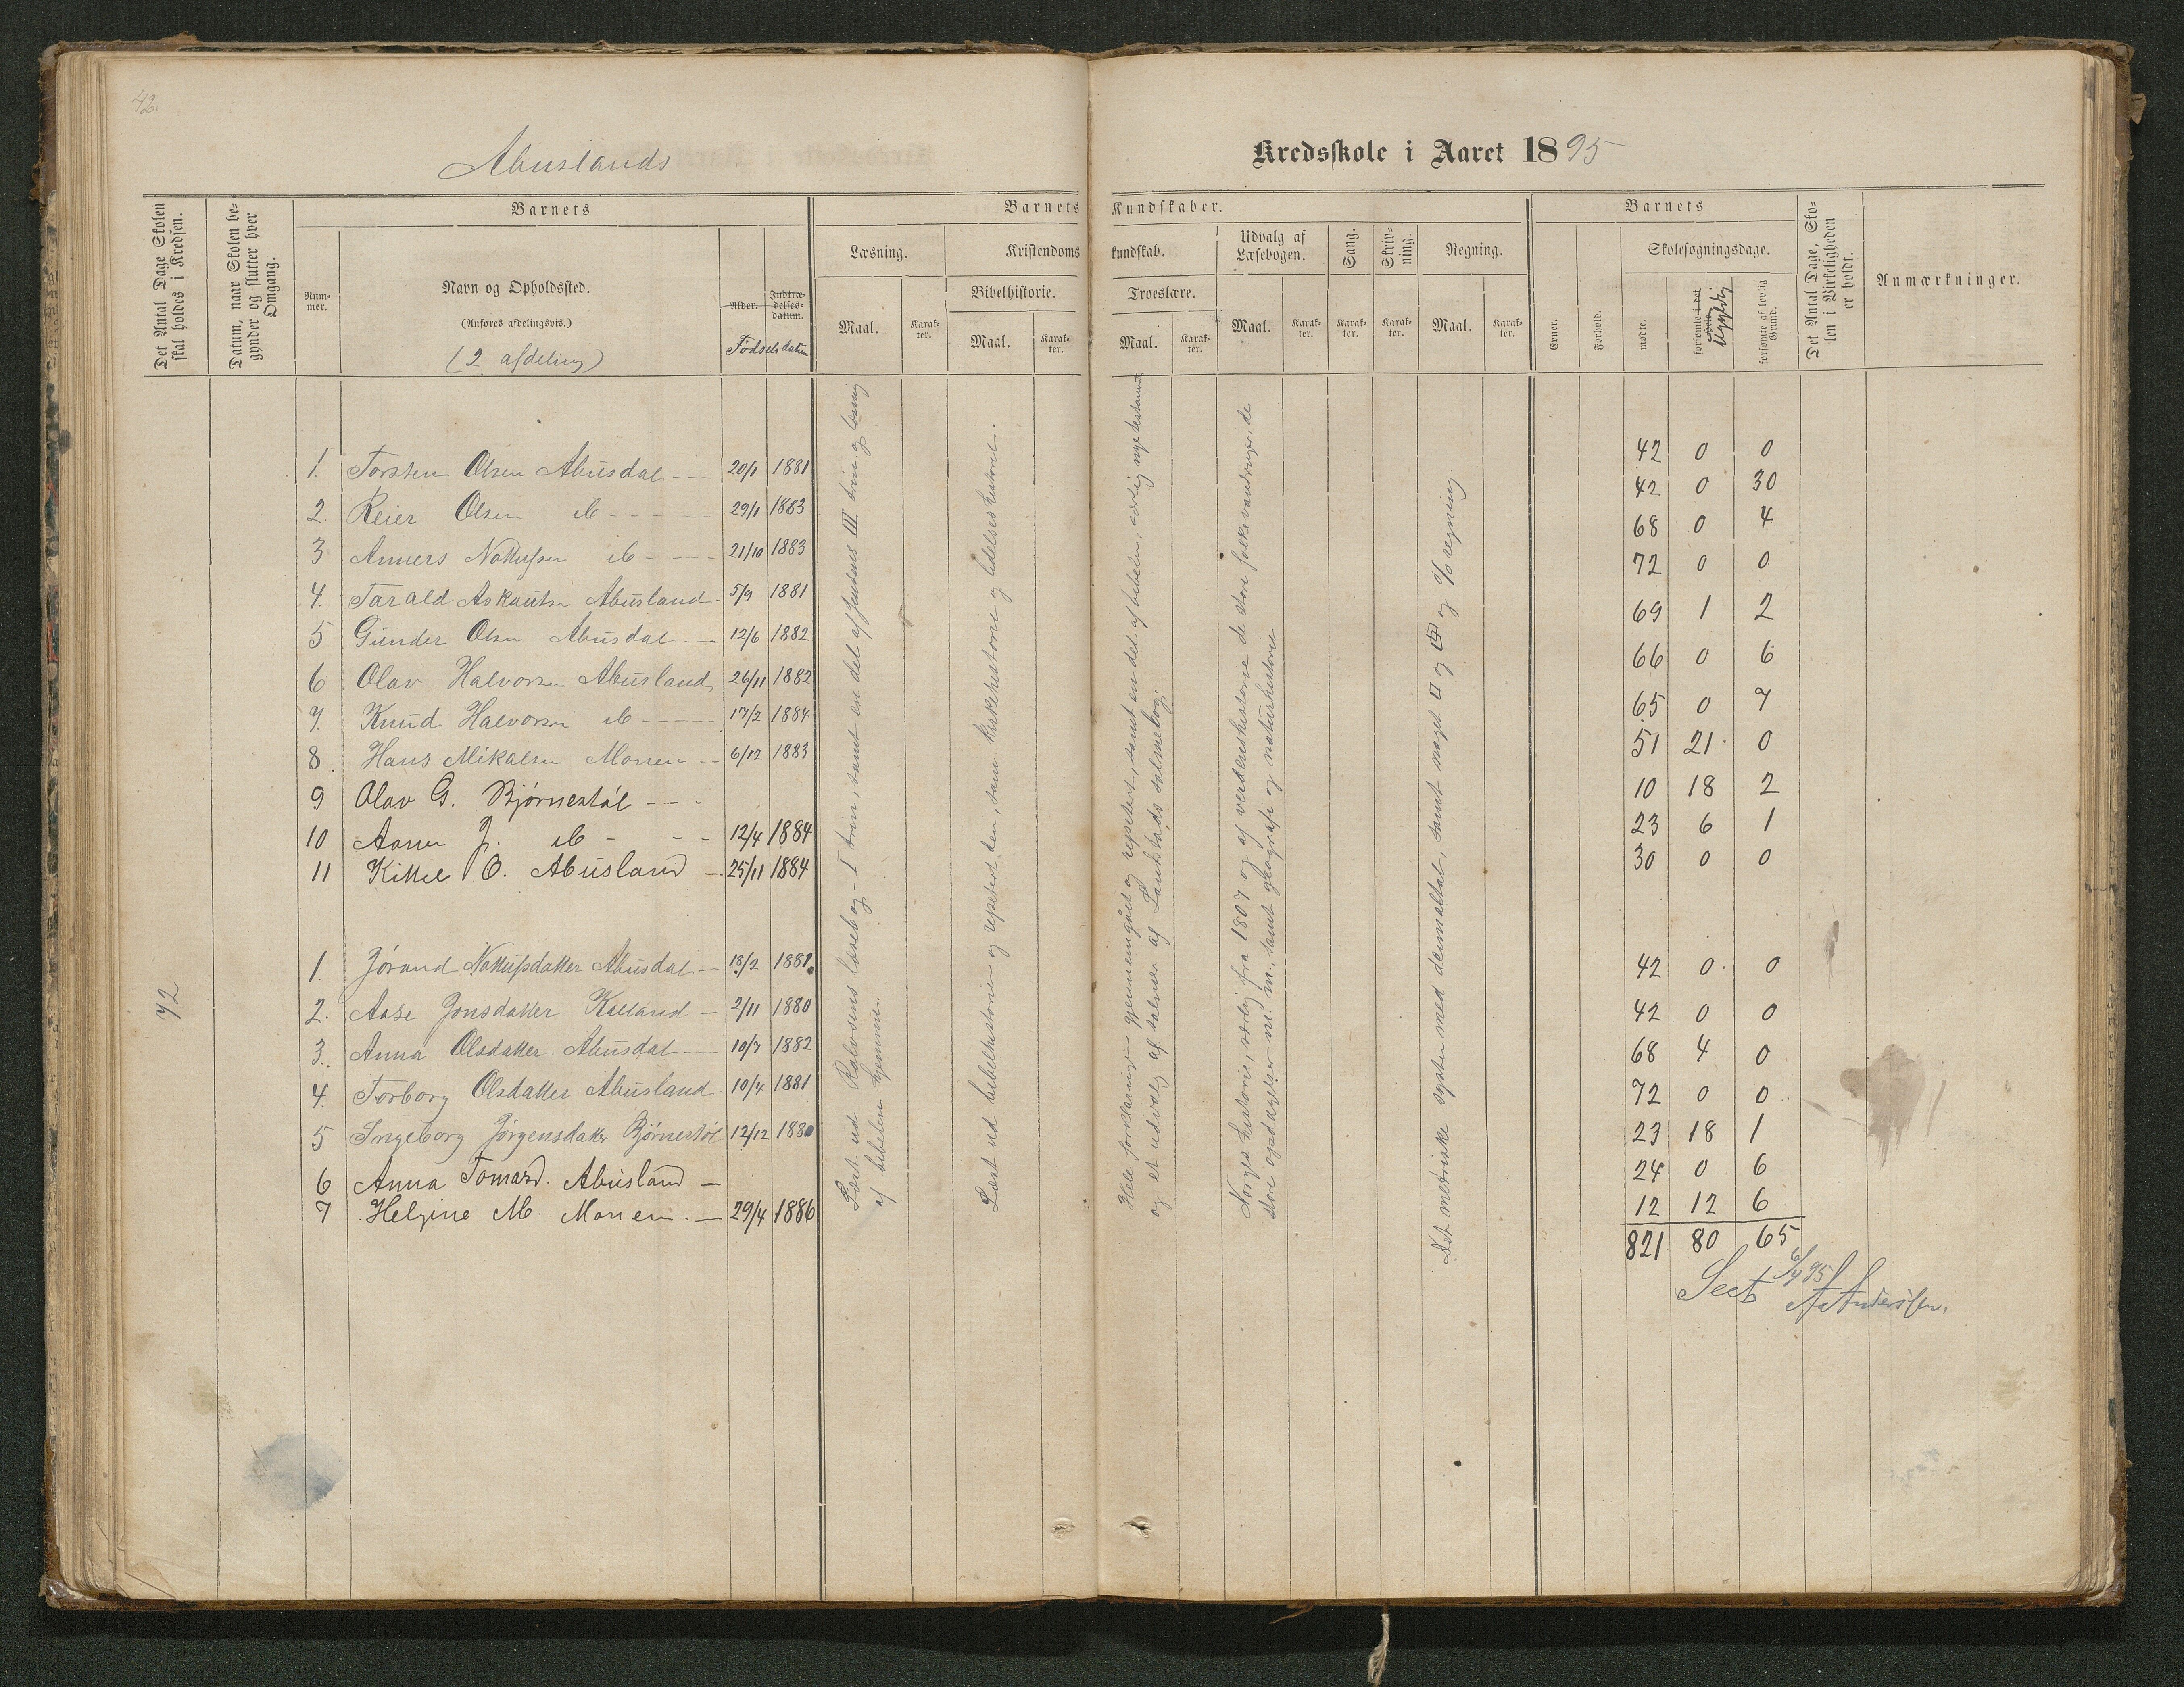 42.
Abuslands
Kredsskole i Aaret 1895
Det Antal Dage Skolen skal holdes i Kredsen.
Datum, naar Skolen begynder og slutter hver Omgang.
Barnets
Barnets Kundskaber.
Barnets
Det Antal Dage, Skolen i Virkeligheden er holdt.
Anmærkninger.
Nummer.
Navn og Opholdssted.
(Anføres afdelingsvis.)
(2 afdeling)
Alder.
Indtrædelsesdatum.
Fødselsdatum
Læsning.
Kristendomskundskab.
Udvalg af Læsebogen.
Sang.
Skrivning.
Regning.
Evner.
Forhold.
Skolesøgningsdage.
Bibelhistorie.
Troeslære.
Maal.
Karakter.
Maal.
Karakter.
Maal.
Karakter.
Maal.
Karakter.
Karakter.
Karakter.
Maal.
Karakter.
mødte.
forsømte i det
forsømte af lovlig Grund.
1. Torsten Olsen Abusdal 20/1 1881 42 0 0
2. Reier Olsen ib 29/1 1883 42 0 30
3 Anners Nottufsen ib 21/10 1883 68 0 4
4. Tarald Askautsn Abusland 5/9 1881 72 0 0
5 Gunder Olsn Abusdal 12/6 1882 69 1 2
6 Olav Halvorsen Abusland 26/11 1882 66 0 6
7. Knud Halvorsen ib 17/2 1884 65 0 7
8 Hans Mikalsen Monen 6/12 1883 51 21 0
9 Olav G. Bjørnestøl 10 18 2
10 Aanen J. ib 12/4 1884 23 6 1
11 Kittel O. Abusland 25/11 1884 30 0 0
72
1. Jorand Nottufsdatter Abusdal 18/2 1881 42 0 0
2. Aase Jonsdatter Kalland 2/11 1880 42 0 0
3. Anna Olsdatter Abusdal 10/7 1882 68 4 0
4. Torborg Olsdatter Abusland 10/4 1881 72 0 0
5 Ingeborg Jørgensdatter Bjørnestøl 12/12 1880 23 18 1
6 Anna Tomasd. Abusland 24 0 6
7 Helgine M. Monen 29/4 1886 12 12 6
821 80 65
Seet 6/4 95
A Anderssen.
Læst ud Rolvsens læsebog - I trin, samt en del af Jensens III. trin og læsning
af bibelen hjemme.
Læst ud bibelhistorien og repetert den, samt kirkehistorie og lidelseshistorie.
Hele forklaringen gjennemgået og repetert, samt en del af bibelen, særlig nye testament
og et udvalg af salmer af Landstads salmebog.
Norges historie, særlig fra 1807 og af verdenshistorie de store folkevandringer, de
store opdagelser m. m., samt geografi og naturhistorie
Det metriske system med decimaltal, samt noget □ og og % regning